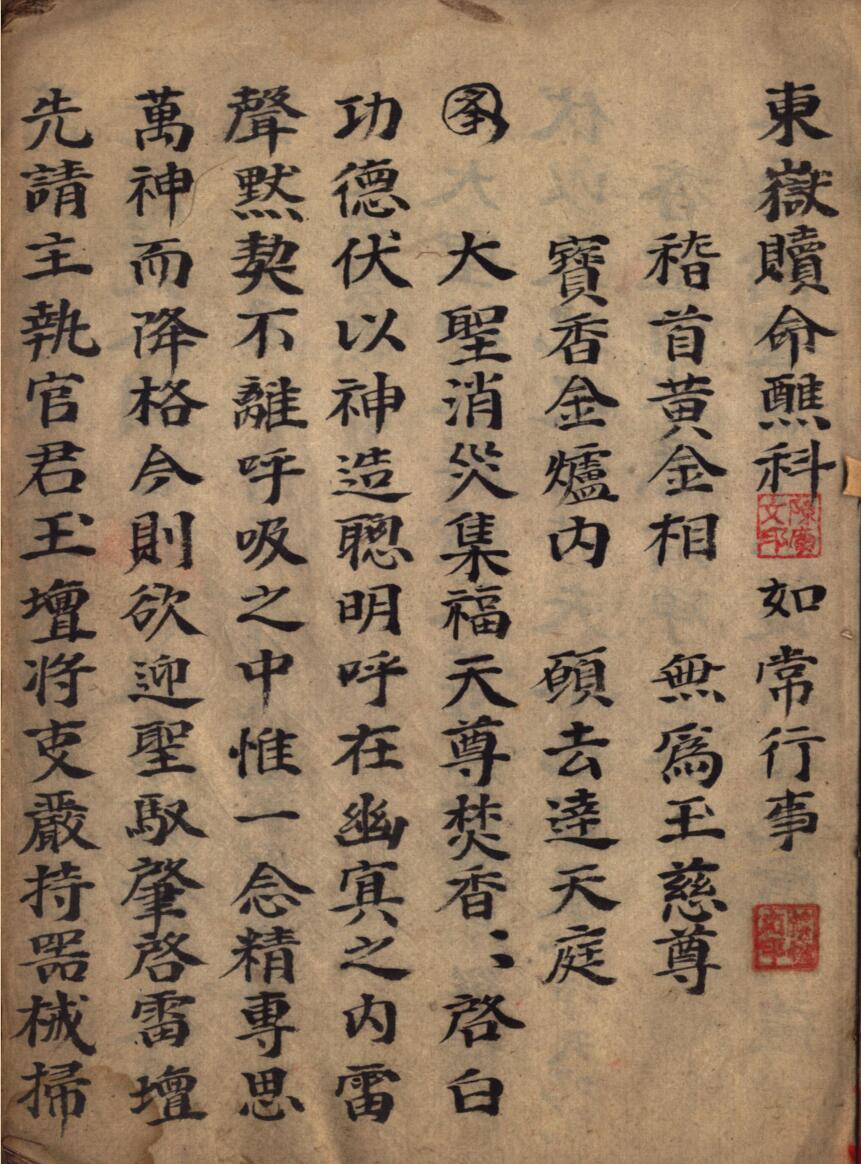 東嶽贖命醮科 如常行事
稽首黃金相 無為玉慈尊
寶香金爐內 願去達天庭
大聖消災集福天尊焚香〻啓白
功德伏以神造聰明呼在幽寘之內雷
聲默契不離呼吸之中惟一念精專思
萬神而降格今則欲迎聖馭肇啓雷壇
先請主執官君玉壇将吏嚴持器械掃